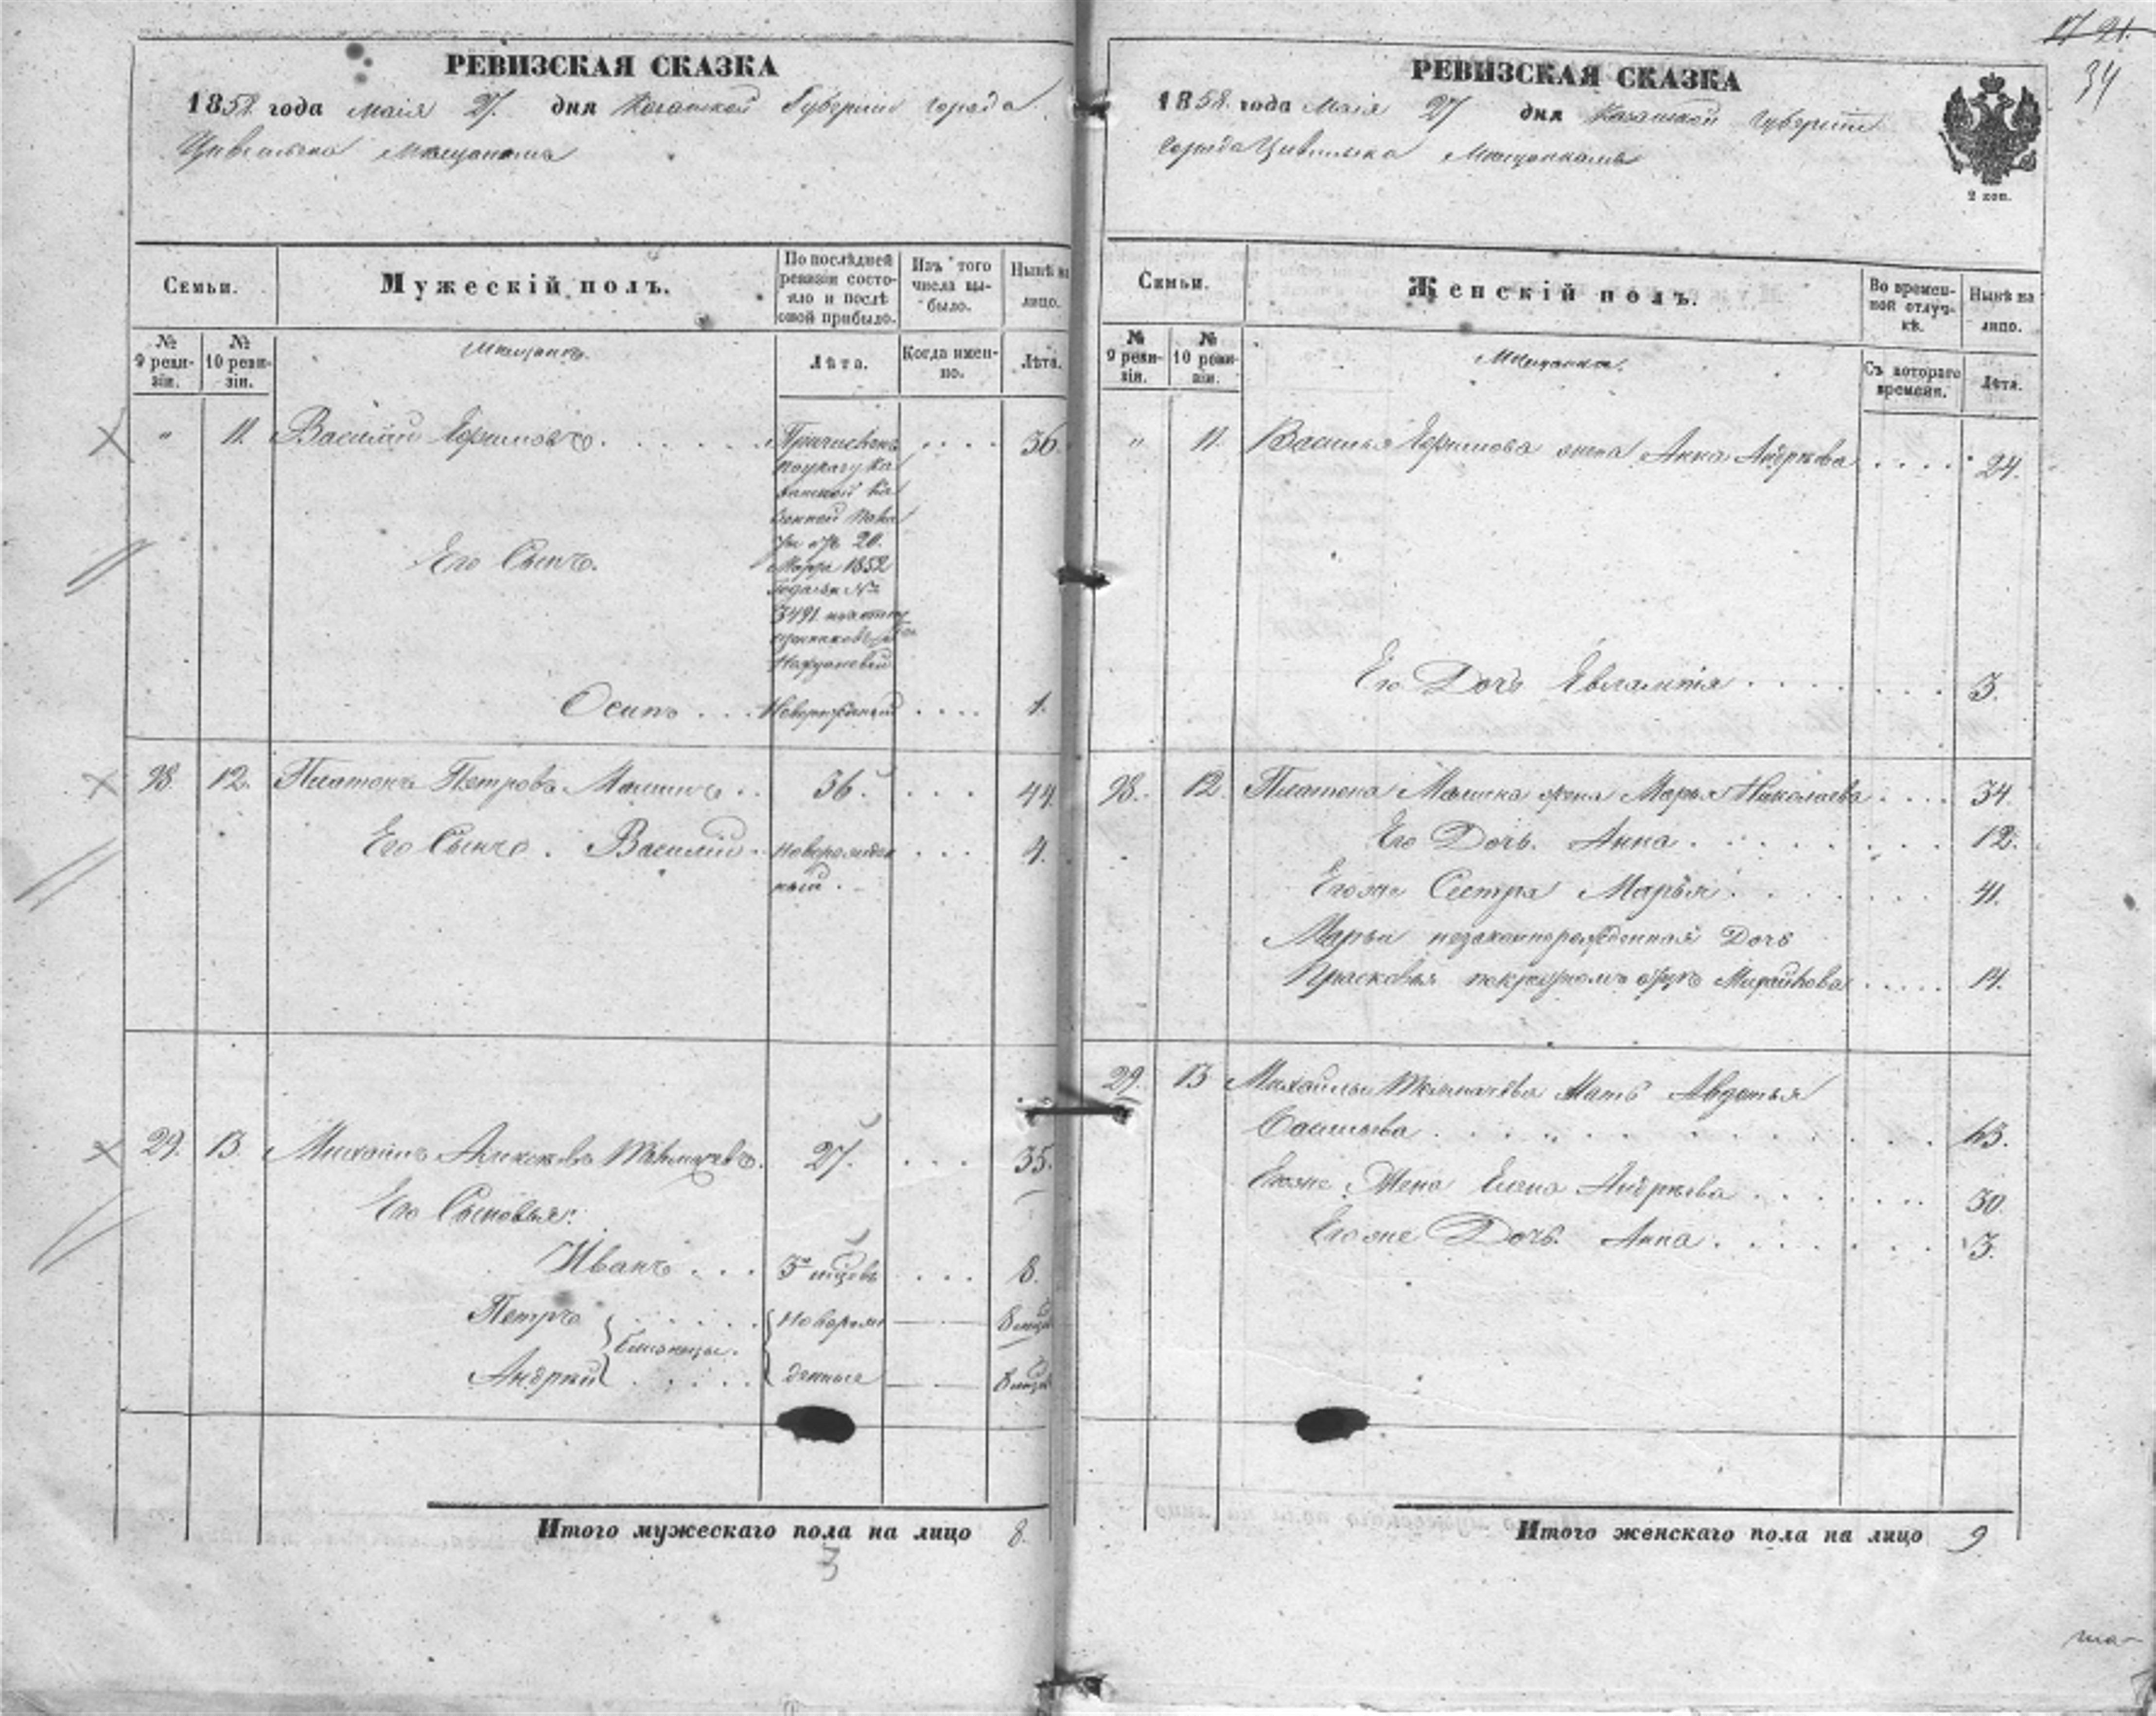 РЕВИЗСКАЯ СКАЗКА
1858 года маія 27. дня Казанской Губерніи города
Цивильска мещанъ
Семьи.
Мужескій полъ.
По послѣдней ревизіи состояло и послѣ оной прибыло.
Изъ того числа выбыло.
Нынѣ на лицо.
№ 9 ревизіи.
№ 10 ревизіи.
Мещанъ.
Лѣта.
Когда именно.
Лѣта.
" 11. Василій Ефимовъ. Причисленъ 36.
по указу Ка
занской Ка
зенной Пала
ты отъ 20.
Марта 1852
года за №
3491
Его Сынъ.
Осипъ . . . Новорожденный . . . . 1.
28. 12. Платонъ Петровъ Малинъ . . 36. . . . 44.
Его Сынъ. Василій. новорожден . . . 4.
ный.
29. 13. Михаилъ Алексѣевъ 27. . . . 35.
Его Сыновья:
Иванъ . . . 3 мѣсяцовъ . . . 8.
Петръ близнецы. Новорож 8 мѣсяц
Андрей денные 8 мѣсяц
Итого мужескаго пола на лицо 8.
3
РЕВИЗСКАЯ СКАЗКА
1858. года Маія 27 дня Казанской Губерніи
города Цивильска Мещанкамъ
2 коп.
17 21.
34
Семьи.
Женскій полъ.
Во временной отлучкѣ.
Нынѣ на лицо.
№ 9 ревизіи.
№ 10 ревизіи.
Мещанки.
Съ котораго времени.
Лѣта.
" 11. Василья Ефимова жена Анна Андрѣева . . . . 24.
Его Дочь Евлампія . . . . . . . 3.
28. 12. Платона Малина жена Марья Николаева . . . . 34.
Его Дочь. Анна . . . . . . . . 12.
Его же Сестра Марья . . . . . . . 41.
Марьи незаконнорожденная Дочь
Прасковья по крестномъ отцѣ . . . . . 14.
29. 13 Михайлы Мать Авдотья
Васильева . . . . . . . . . . 63.
Его же Жена Елена Андрѣева . . . . . . . 30.
Его же Дочь. Анна . . . . . . . 3.
Итого женскаго пола на лицо 9